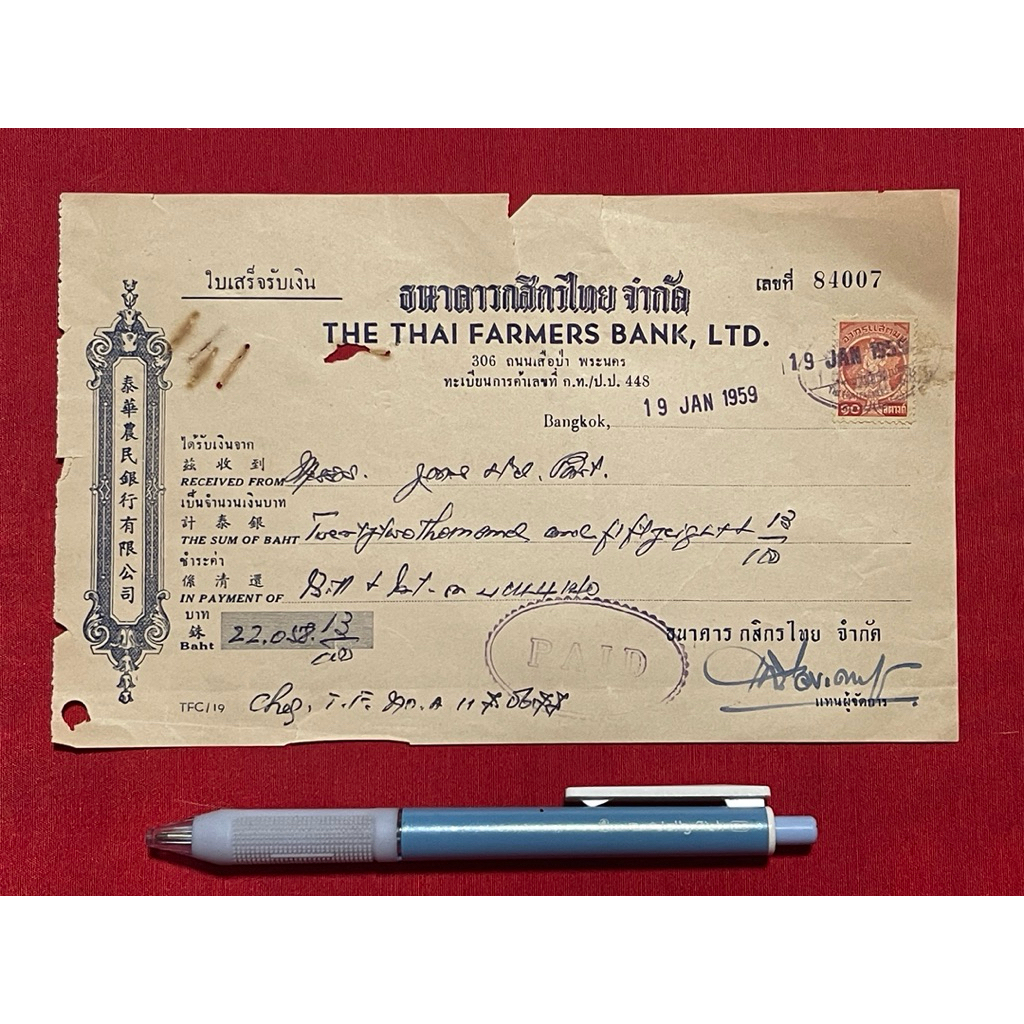 ใบเสร็จรับเงิน
ธนาคารกสิกรไทย จำกัด
เลขที่ 84007
THE THAI FARMERS BANK, LTD.
306 ถนนเสือป่า พระนคร
ทะเบียนการค้าเลขที่ ก.ท./ป.ป. 448
19 JAN 1959
๑๐
Bangkok, 19 JAN 1959
泰華農民銀行有限公司
ได้รับเงินจาก
茲收到
RECEIVED FROM
เป็นจำนวนเงินบาท
計泰銀
THE SUM OF BAHT Twentytwo thousand and fiftyeight & 13/100
ชำระค่า
係清還
IN PAYMENT OF Bill & Int. on
บาท
銖
Baht 22,058.13/00
PAID
ธนาคาร กสิกรไทย จำกัด
แทนผู้จัดการ
TFC/19 Chq.